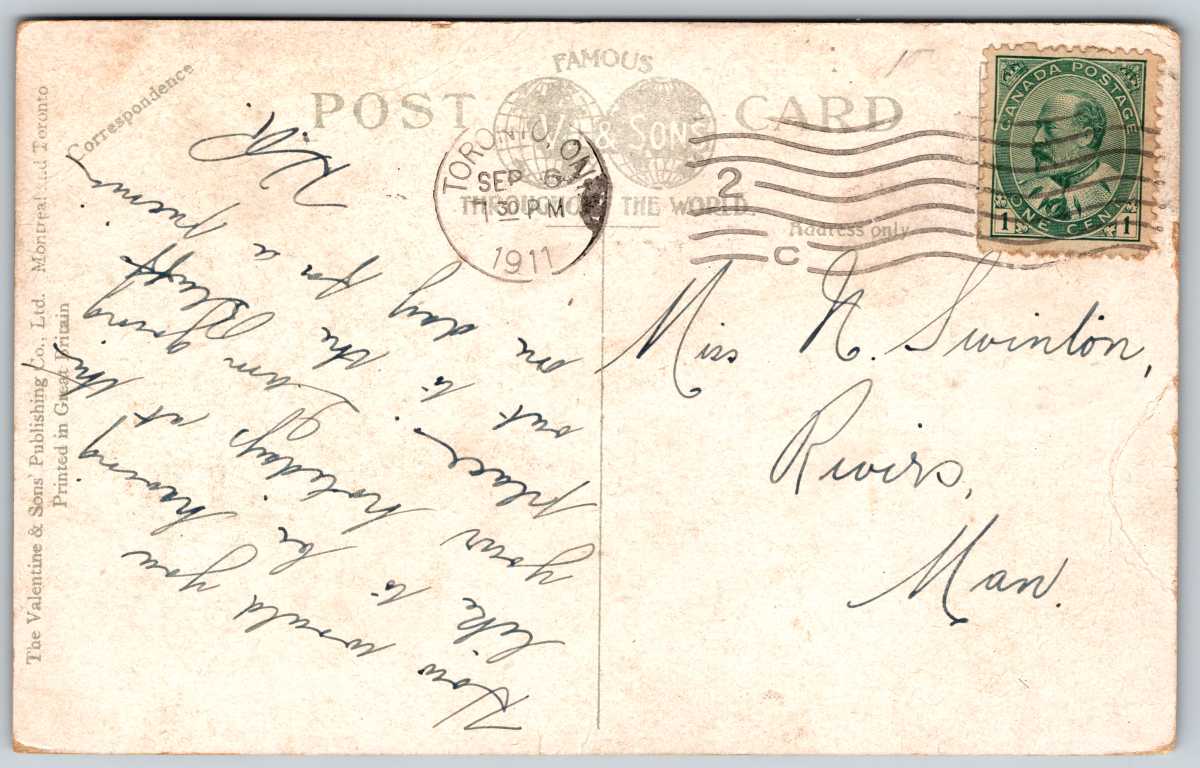 FAMOUS
POST CARD
V. & SONS
THROUGHOUT THE WORLD.
Correspondence
Address only
The Valentine & Sons' Publishing Co., Ltd. Montreal and Toronto
Printed in Great Britain
TORONTO, ONT.
SEP 6
1 30 PM
1911
2
C
CANADA POSTAGE
1 ONE CENT 1
How would you
like to be having
your holidays at this
place. I am going
out to the Bluffs
one day for a picnic
Miss N. Swinton,
Rivers,
Man.